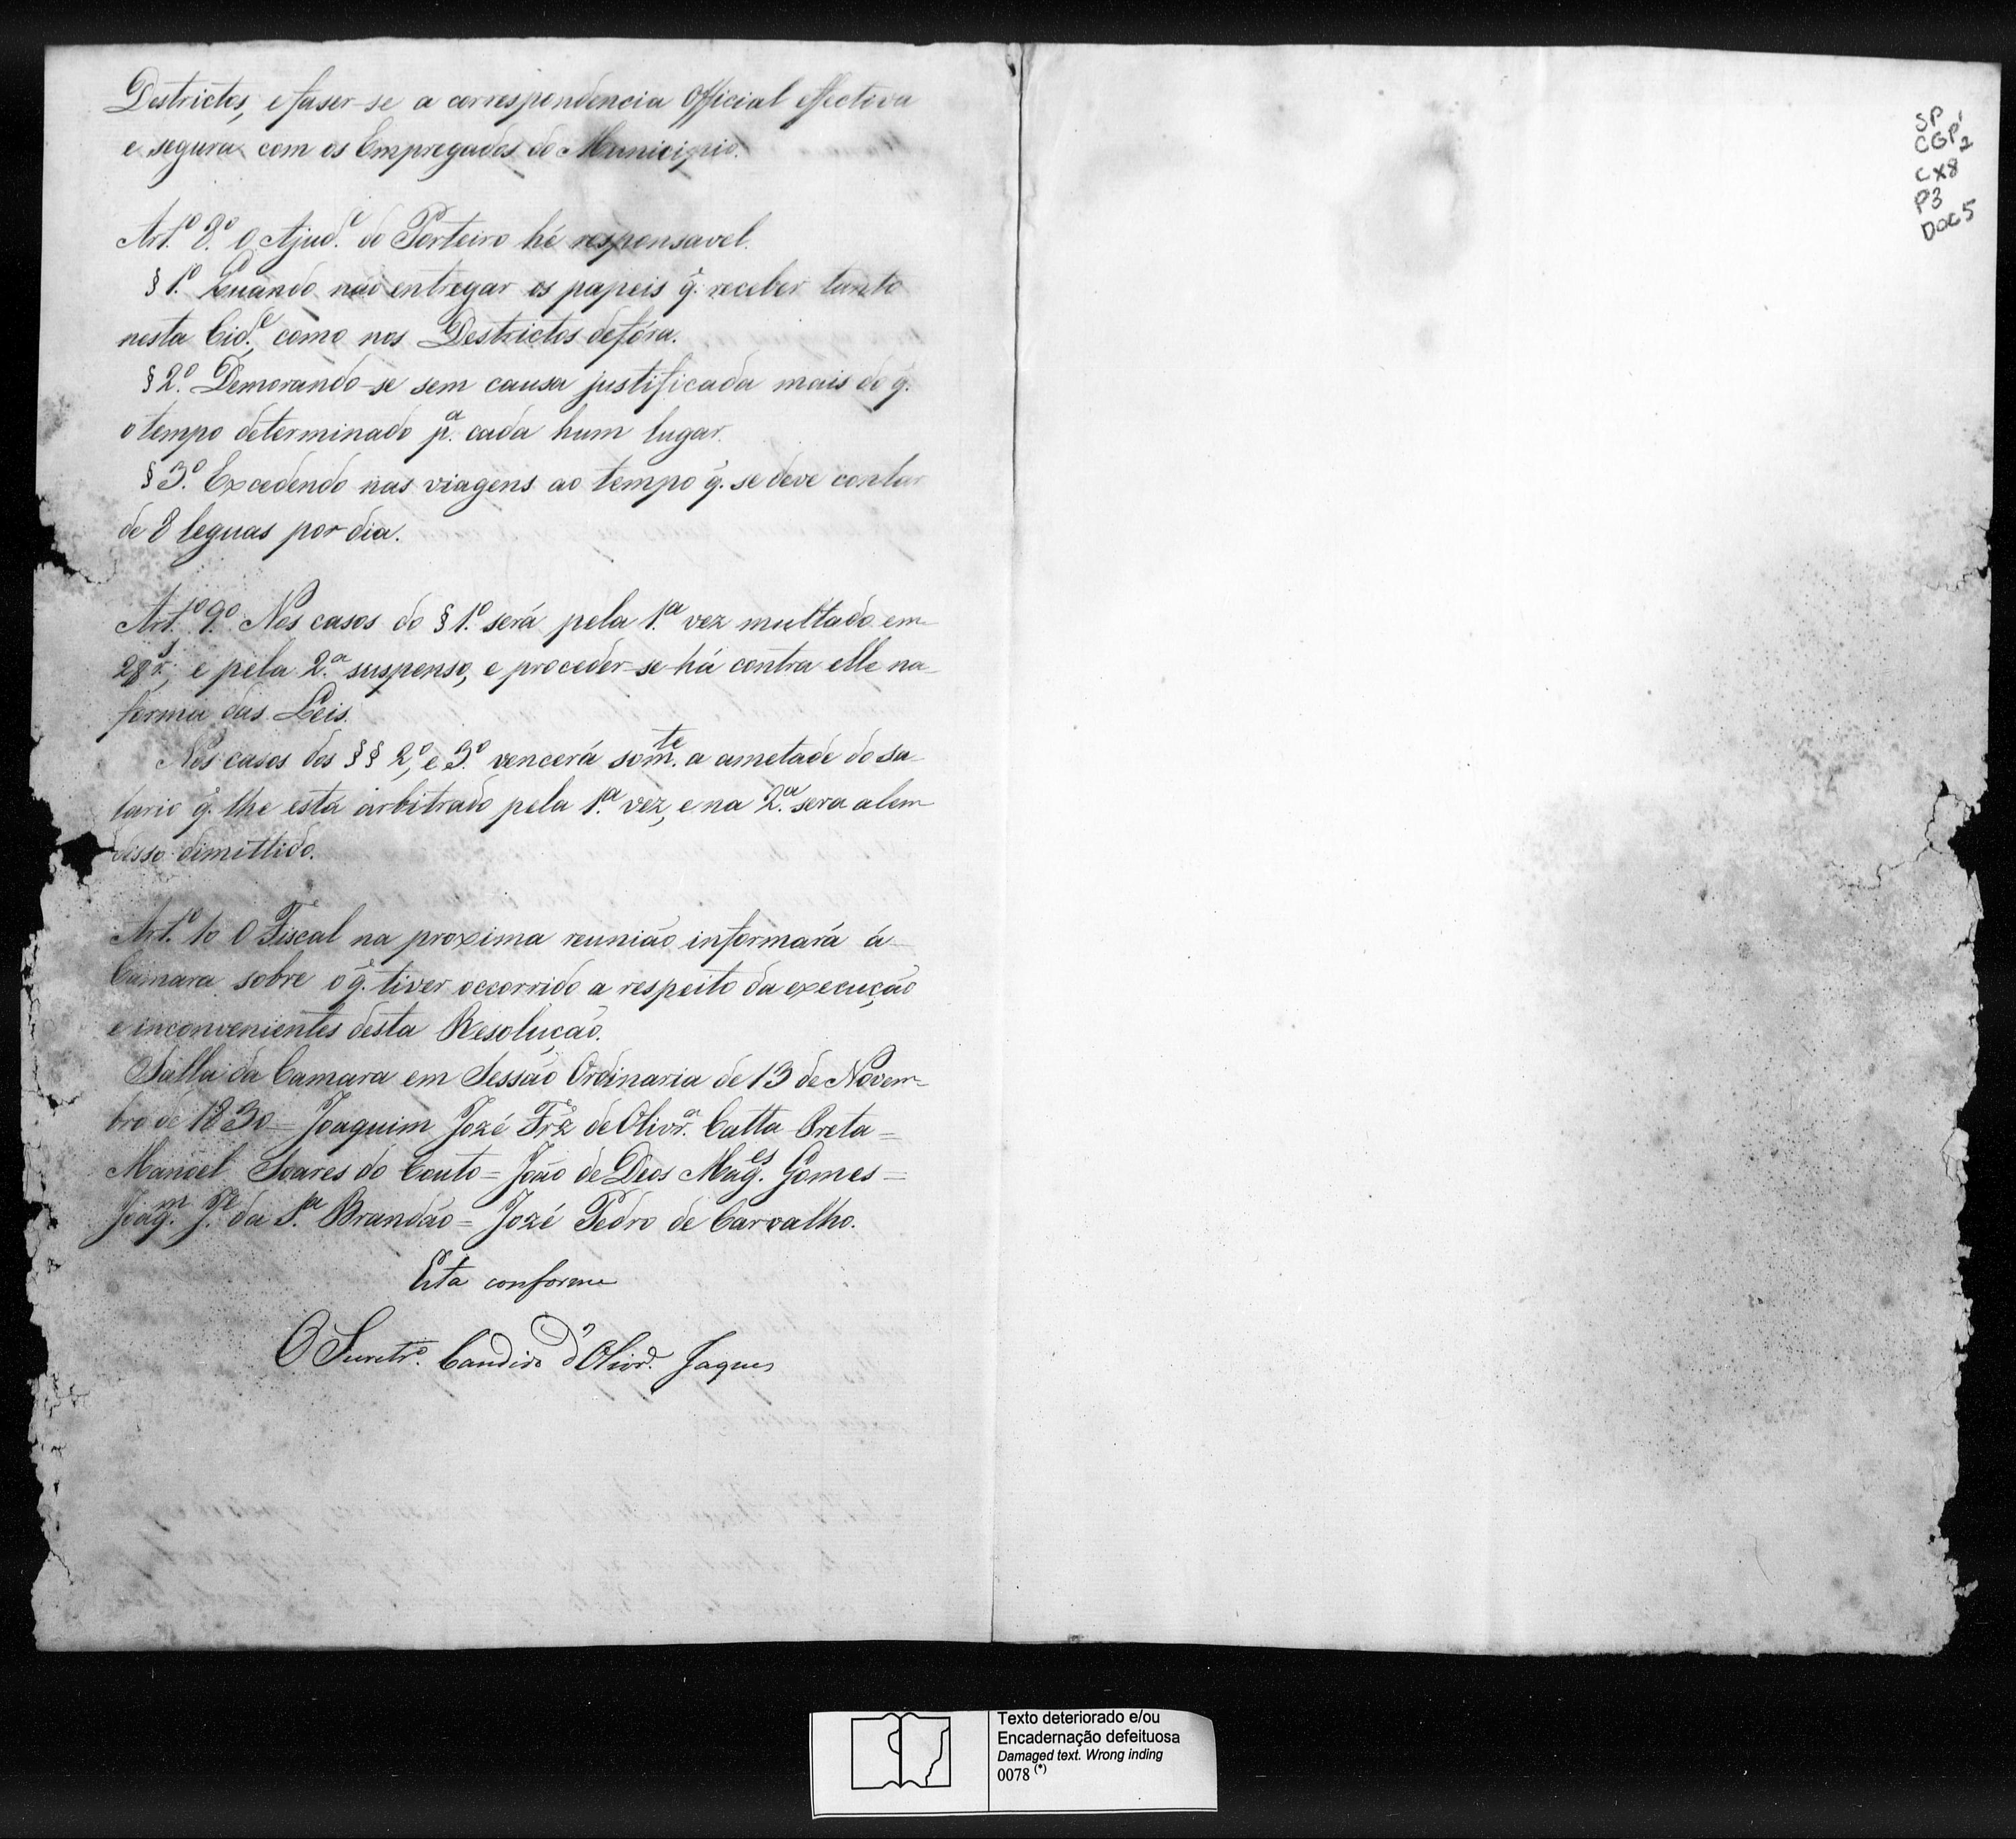 Destrictos, e faser-se a correspondencia Official effectiva
e segura com os Empregados do Municipio.
Art.º 8.º O Ajud.e do Porteiro hé responsavel.
§ 1.º Quando não entregar os papeis q̃. receber tanto
nesta Cid.e, como nos Destrictos defóra.
§ 2.º Demorando-se sem causa justificada mais do q̃.
o tempo determinado p.a cada hum lugar.
§ 3.º Excedendo nas viagens ao tempo q̃. se deve contar
de 8 leguas por dia.
Art.º 9.º Nos casos do § 1.º será pela 1.ª vez multado em
2$ r.s, e pela 2.ª suspenso, e proceder-se-há contra elle na
forma das Leis.
Nos casos dos §§ 2.º, e 3.º vencerá som.te a ametade do sa-
lario q̃. lhe está arbitrado pela 1.ª vez, e na 2.ª sera alem
disso dimittido.
Art.º 10 O Fiscal na proxima reunião informará á
Camara sobre o q̃. tiver occorrido a respeito da execução
e inconvenientes desta Resolução.
Salla da Camara em Sessão Ordinaria de 13 de Novem-
bro de 1830 = Joaquim Jozé Frz̃ de Olivr.a Catta Preta =
Manoel Soares do Couto = João de Deos Mag.es Gomes =
Joaq.m J.e da S.a Brandão = Jozé Pedro de Carvalho.
Esta conforme
O Secretr.o Candido d'Olivr.a Jaques
SP
CGP 1
2
CX8
P3
DOC5
Texto deteriorado e/ou
Encadernação defeituosa
Damaged text. Wrong inding
0078 (*)